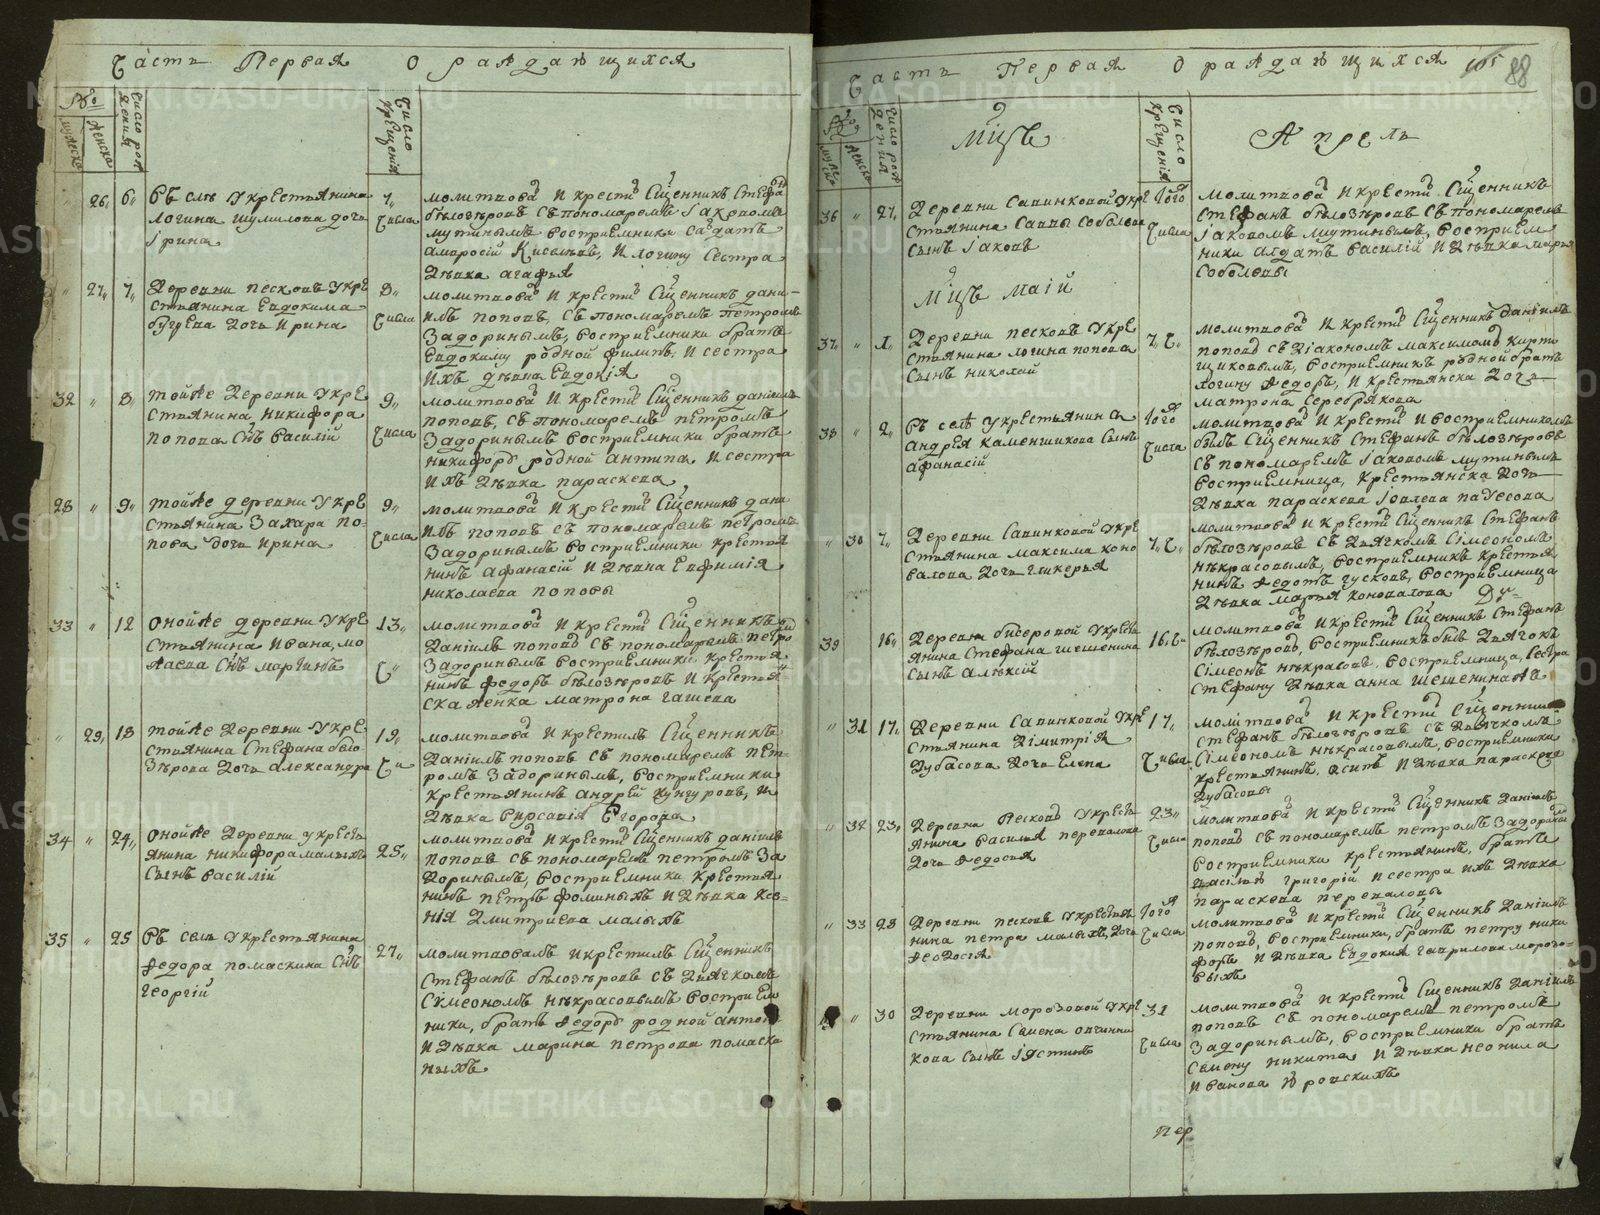 Часть Первая О раждающихся
№
мужеска
женска
число рож
дения
число
крещенїя
26 6
Въ селѣ У крестьянина
логина шумилова дочь
Ірина
7
числа
молитвова и крести Сщенникъ Стефа
бѣлозѣровъ съ пономаремъ Іаковомъ
мутинымъ восприемники салдатъ
амвросій Киселевъ, и логину Сестра
дѣвка агафья
27 7
Деревни песковъ У кре
стьянина Евдокима
бугуева дочь Ирина
8
числа
молитвова и крести Сщенникъ дани
илъ поповъ, съ пономаремъ петромъ
Задоринымъ, восприемники братъ
Евдокиму родной филипъ, и сестра
ихъ дѣвка Евдокія
32 8
тойже деревни У кре
стьянина никифора
попова Снъ василій
9
числа
молитвова и крести Сщенникъ данїилъ
поповъ, съ пономаремъ петромъ
Задоринымъ восприемники братъ
никифору родной антипа, и сестра
ихъ дѣвка параскева
28 9
тойже деревни У кре
стьянина Захара по-
пова дочь Ирина
9
числа
молитвова и крести Сщенникъ дани
илъ поповъ съ пономаремъ петромъ
Задоринымъ восприемники крестья
нинъ афанасій и дѣвка Евфимія
николаева поповы
33 12
Онойже деревни У кре
стьянина Ивана мо
жаева Снъ мартинъ
13
молитвова и крести Сщенникъ
данїилъ поповъ съ пономаремъ петро
Задоринымъ восприемники крестья
нинъ федоръ бѣлозѣровъ и крестья
ска женка матрона гашева
29 18
тойже деревни У кре
стьянина Стефана бело
зѣрова дочь александра
19
молитвова и крестилъ Сщенникъ
данїилъ поповъ съ пономаремъ пет-
ромъ Задоринымъ, восприемники
крестьянинъ андрей кунгуровъ, и
34 24
Онойже деревни У кресть
янина никифора малыхъ
Сынъ василій
25
молитвова и крести Сщенникъ данїилъ
поповъ съ пономаремъ петромъ За
доринымъ, восприемники крестья
нинъ петръ фоминыхъ и дѣвка ксе-
нія дмитриева малыхъ
35 25
Въ селѣ У крестьянина
федора помаскина Снъ
георгій
27
молитвовалъ и крестилъ Сщенникъ
Стефанъ бѣлозѣровъ съ дьячкомъ
Сімеономъ некрасовымъ восприем
ники, братъ федору родной антон
и дѣвка марина петрова помаски
ныхъ
Часть Первая О раждающихся
105 88
№
число рож
дения
мцъ
число
крещенїя
Апрель
36 27
Деревни Савинковой У кре
стьянина Саввы Соболева
сынъ Іаковъ
того
числа
молитвова и крести Сщенникъ
Стефанъ бѣлозѣровъ съ пономаремъ
Іаковомъ мутинымъ, восприем
ники салдатъ василій и дѣвка марья
Соболевы
мцъ маій
37 1
Деревни песковъ У кре
стьянина логина попова
Сынъ николай
7 Ч
молитвова и крести Сщенникъ данїилъ
поповъ съ діакономъ максимомъ кирп
щиковымъ, восприемникъ родной братъ
логину федоръ, и крестьянска дочь
матрона Серебрякова
38 2
Въ селѣ У крестьянина
андрея каменщикова Сынъ
афанасій
того
числа
молитвова и крести и восприемникомъ
былъ Сщенникъ Стефанъ бѣлозѣровъ
съ пономаремъ Іаковомъ мутинымъ
восприемница, крестьянска дочь
дѣвка параскева
30 7
Деревни Савинковой У кре
стьянина максима коно
валова дочь гликерья
7 Ч
молитвова и крести Сщенникъ Стефанъ
бѣлозѣровъ съ дьячкомъ Сімеономъ
некрасовымъ, восприемникъ крестья
нинъ федотъ гусковъ, восприемница
дѣвка марья коновалова
39 16
Деревни бисеровой У кресть
янина Стефана шешенина
Сынъ алексій
16
молитвова и крести Сщенникъ Стефанъ
бѣлозѣровъ, восприемникъ былъ дьячокъ
Сімеонъ некрасовъ, восприемница, сестра
Стефану дѣвка анна шешенина
31 17
Деревни Савинковой У кре
стьянина Дімитрїя
дубасова дочь Елена
17
числа
молитвова и крести Сщенникъ
Стефанъ бѣлозѣровъ съ дьячкомъ
Сімеономъ некрасовымъ, восприемники
крестьянинъ, осипъ и дѣвка параскева
дубасовы
32 23
Деревни Песковъ У кресть
янина василья перевалова
дочь федосья
23
числа
молитвова и крести Сщенникъ данїилъ
поповъ съ пономаремъ петромъ Задориным
восприемники крестьянинъ, братъ
василью григорій и сестра ихъ дѣвка
параскева переваловы
33 28
Деревни песковъ У крестья
нина петра малыхъ, дочь
феодосїя
того
числа
молитвова и крести Сщенникъ данїилъ
поповъ, восприемники, братъ петру ники
форъ и дѣвка Евдокия гаврилова морозо-
выхъ
40 30
Деревни морозовой У кре
стьянина Семена овчинни
кова сынъ Іустинъ
31
числа
молитвова и крести Сщенникъ данїилъ
поповъ съ пономаремъ петромъ
Задоринымъ, восприемники братъ
Семену никита и дѣвка неонила
Иванова
пер
METRIKI.GASO-URAL.RU